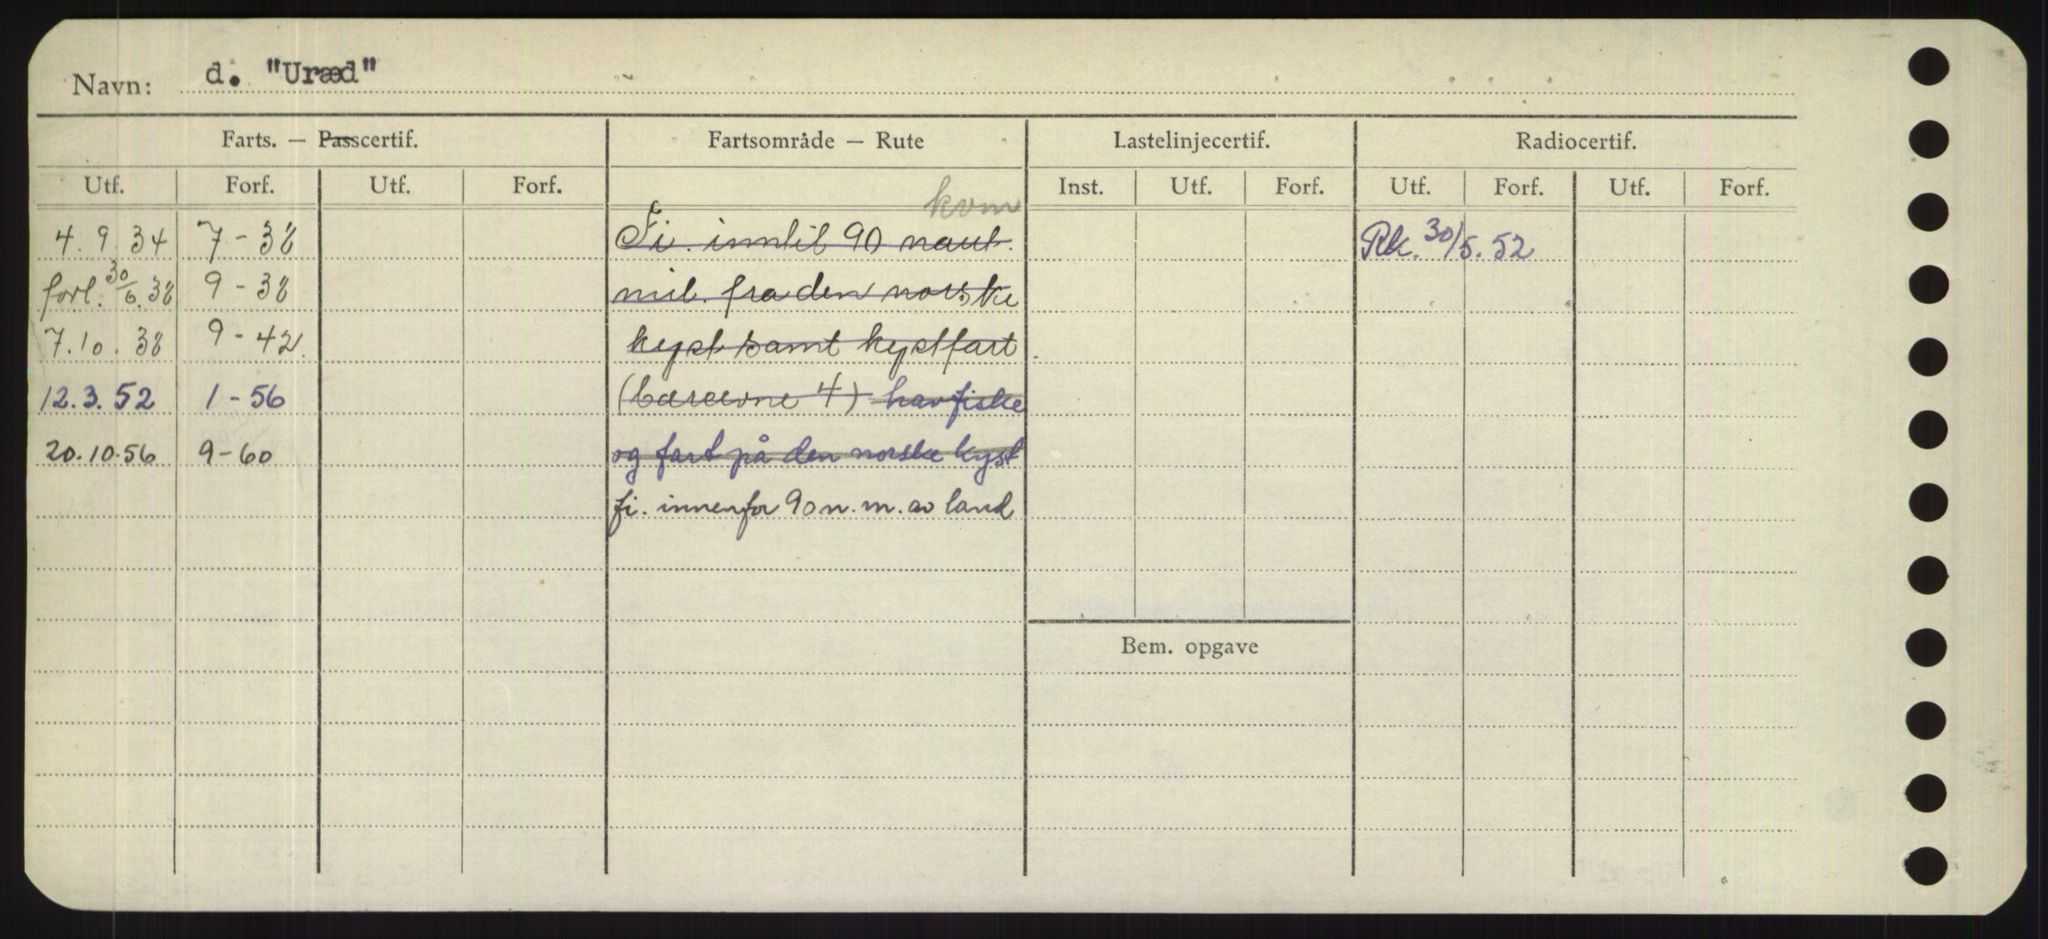 Navn: d. "Uræd"
Farts. — Passcertif. Fartsområde — Rute Lastelinjecertif. Radiocertif.
Utf. Forf. Utf. Forf. Inst. Utf. Forf. Utf. Forf. Utf. Forf.
4.9.34 7-38 Fi. inntil 90 naut. Rk. 30/5.52
forl. 30/6.38 9-38 mil. fra den norske
7.10.38 9-42 kyst samt kystfart
12.3.52 1-56 (bæreevne 4) havfiske
20.10.56 9-60 og fart på den norske kyst
fi. innenfor 90 n.m. av land
Bem. opgave